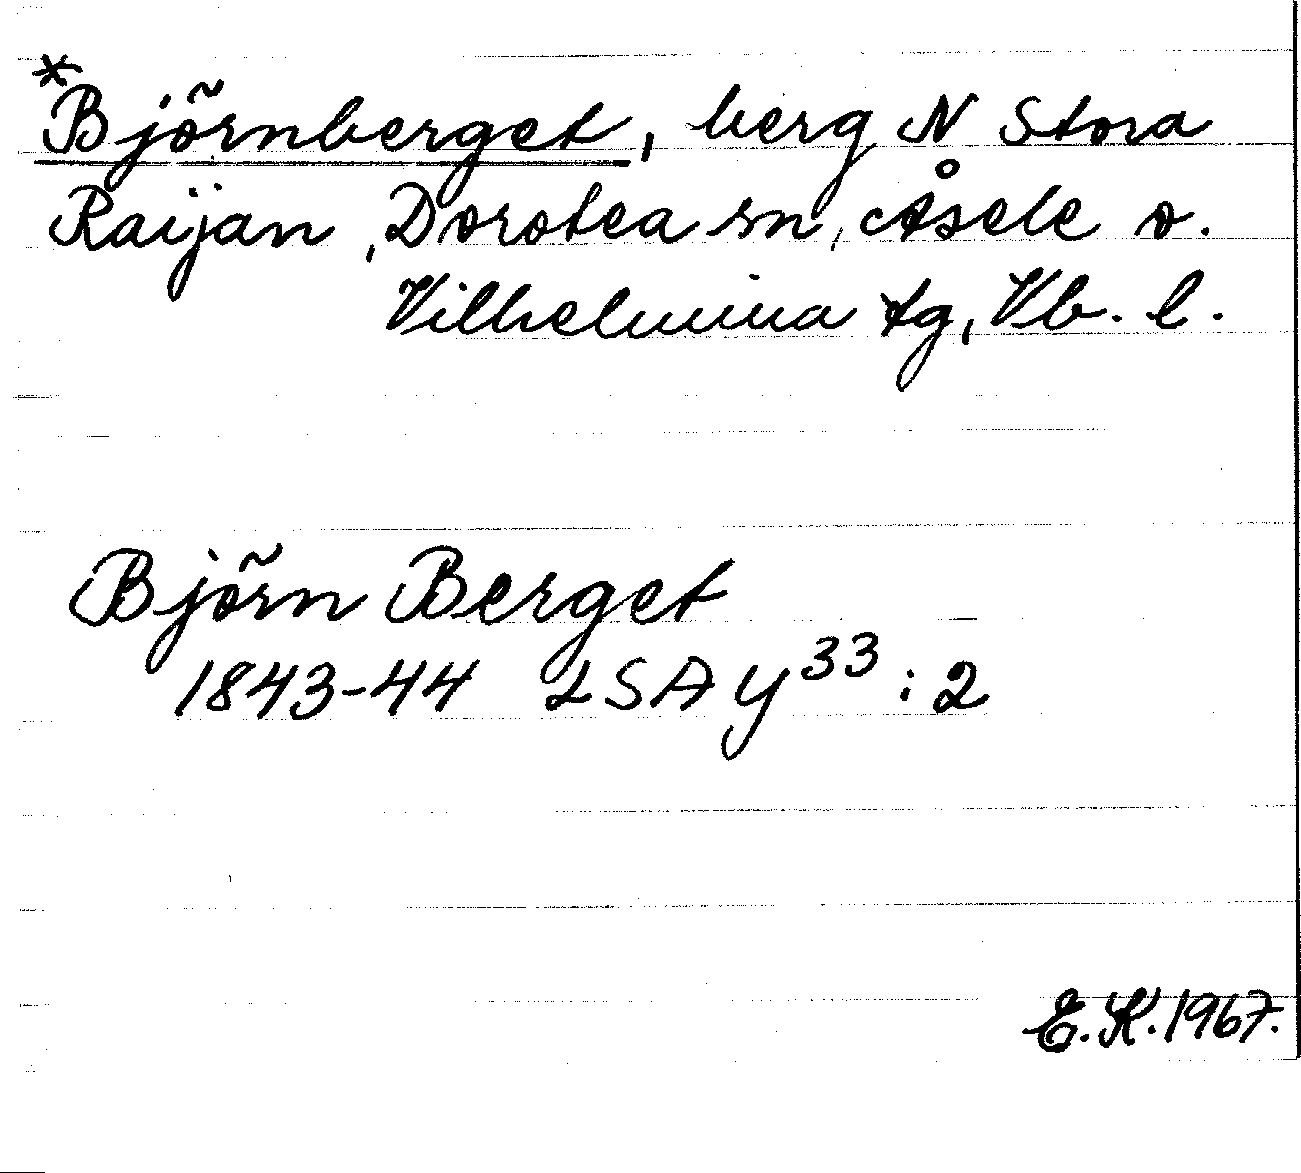 *Björnberget, berg N Stora
Raijan, Dorotea sn, Åsele o.
Vilhelmina tg, Vb. l.
Björn Berget
1843-44 LSA Y33:2
E.K. 1967.